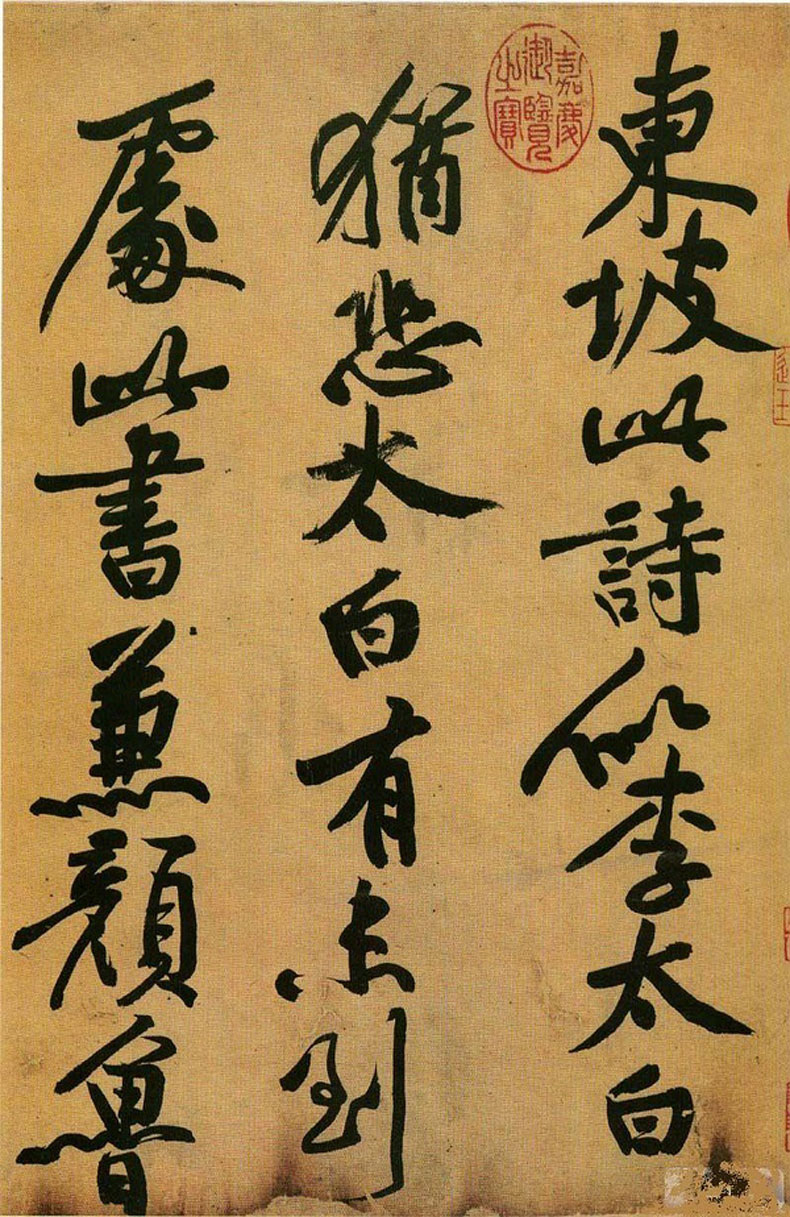 東坡此詩似李太白
嘉慶御覽之寶
猶恐太白有未到
處此書兼顏魯